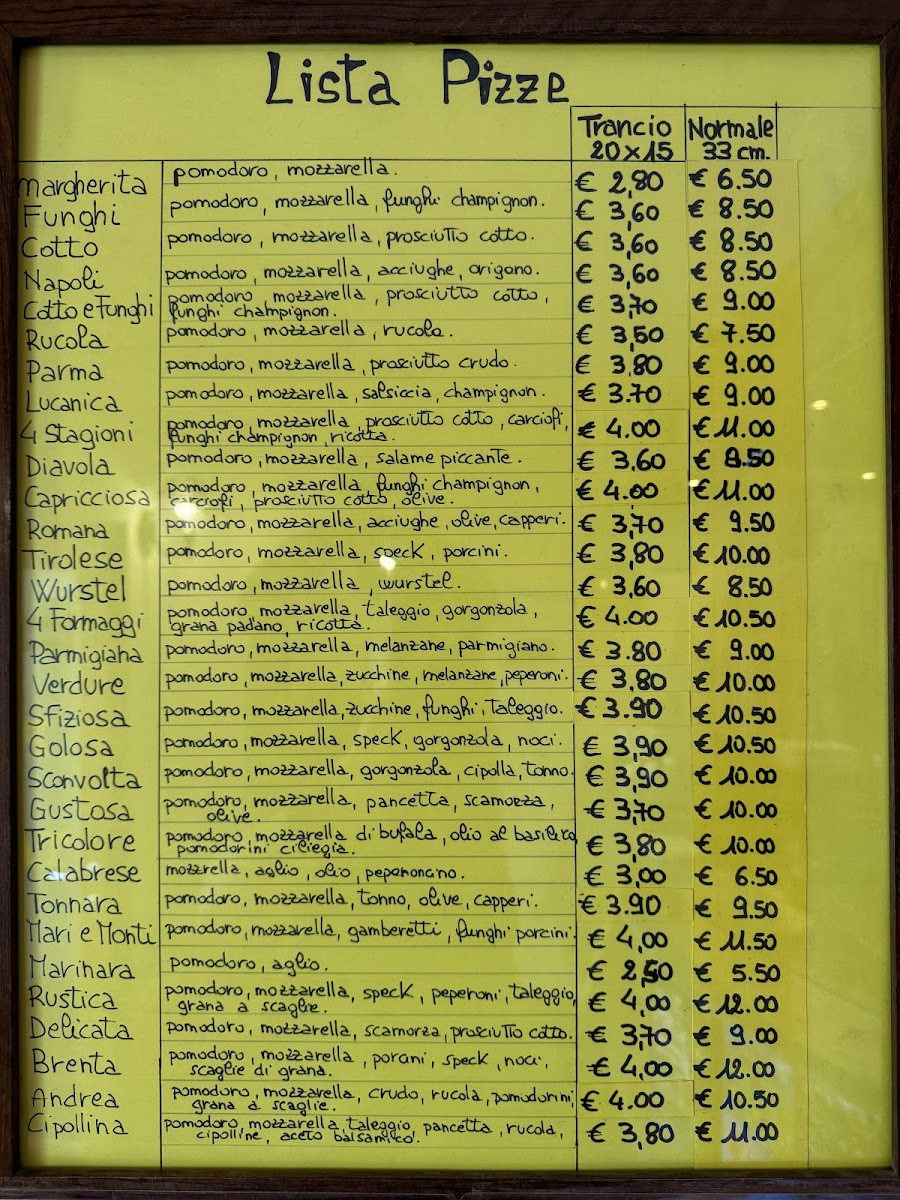 Lista Pizze
Trancio Normale
20x15 33 cm.
margherita pomodoro, mozzarella. € 2,80 € 6.50
Funghi pomodoro, mozzarella, funghi champignon. € 3,60 € 8.50
Cotto pomodoro, mozzarella, prosciutto cotto. € 3,60 € 8.50
Napoli pomodoro, mozzarella, acciughe, origano. € 3,60 € 8.50
Cotto e Funghi pomodoro, mozzarella, prosciutto cotto, € 3,70 € 9.00
funghi champignon.
Rucola pomodoro, mozzarella, rucola. € 3,50 € 7.50
Parma pomodoro, mozzarella, prosciutto crudo. € 3,80 € 9.00
Lucanica pomodoro, mozzarella, salsiccia, champignon. € 3.70 € 9.00
4 Stagioni pomodoro, mozzarella, prosciutto cotto, carciofi, € 4.00 € 11.00
funghi champignon, ricotta.
Diavola pomodoro, mozzarella, salame piccante. € 3,60 € 8.50
Capricciosa pomodoro, mozzarella, funghi champignon, € 4.00 € 11.00
carciofi, prosciutto cotto, olive.
Romana pomodoro, mozzarella, acciughe, olive, capperi. € 3,70 € 9.50
Tirolese pomodoro, mozzarella, speck, porcini. € 3,80 € 10.00
Wurstel pomodoro, mozzarella, wurstel. € 3,60 € 8.50
4 Formaggi pomodoro, mozzarella, taleggio, gorgonzola, € 4.00 € 10.50
grana padano, ricotta.
Parmigiana pomodoro, mozzarella, melanzane, parmigiano. € 3.80 € 9.00
Verdure pomodoro, mozzarella, zucchine, melanzane, peperoni. € 3,80 € 10.00
Sfiziosa pomodoro, mozzarella, zucchine, funghi, taleggio. € 3.90 € 10.50
Golosa pomodoro, mozzarella, speck, gorgonzola, noci. € 3,90 € 10.50
Sconvolta pomodoro, mozzarella, gorgonzola, cipolla, tonno. € 3,90 € 10.00
Gustosa pomodoro, mozzarella, pancetta, scamorza, € 3,70 € 10.00
olive.
Tricolore pomodoro, mozzarella di bufala, olio al basilico € 3,80 € 10.00
pomodorini ciliegia.
Calabrese mozzrella, aglio, olio, peperoncino. € 3,00 € 6.50
Tonnara pomodoro, mozzarella, tonno, olive, capperi. € 3.90 € 9.50
Mari e Monti pomodoro, mozzarella, gamberetti, funghi porcini. € 4,00 € 11.50
Marinara pomodoro, aglio. € 2,50 € 5.50
Rustica pomodoro, mozzarella, speck, peperoni, taleggio, € 4,00 € 12.00
grana a scaglie.
Delicata pomodoro, mozzarella, scamorza, prosciutto cotto. € 3,70 € 9.00
Brenta pomodoro, mozzarella, porcini, speck, noci, € 4,00 € 12.00
scaglie di grana.
Andrea pomodoro, mozzarella, crudo, rucola, pomodorini, € 4.00 € 10.50
grana a scaglie.
Cipollina pomodoro, mozzarella, taleggio, pancetta, rucola, € 3,80 € 11.00
cipolline, aceto balsamico.